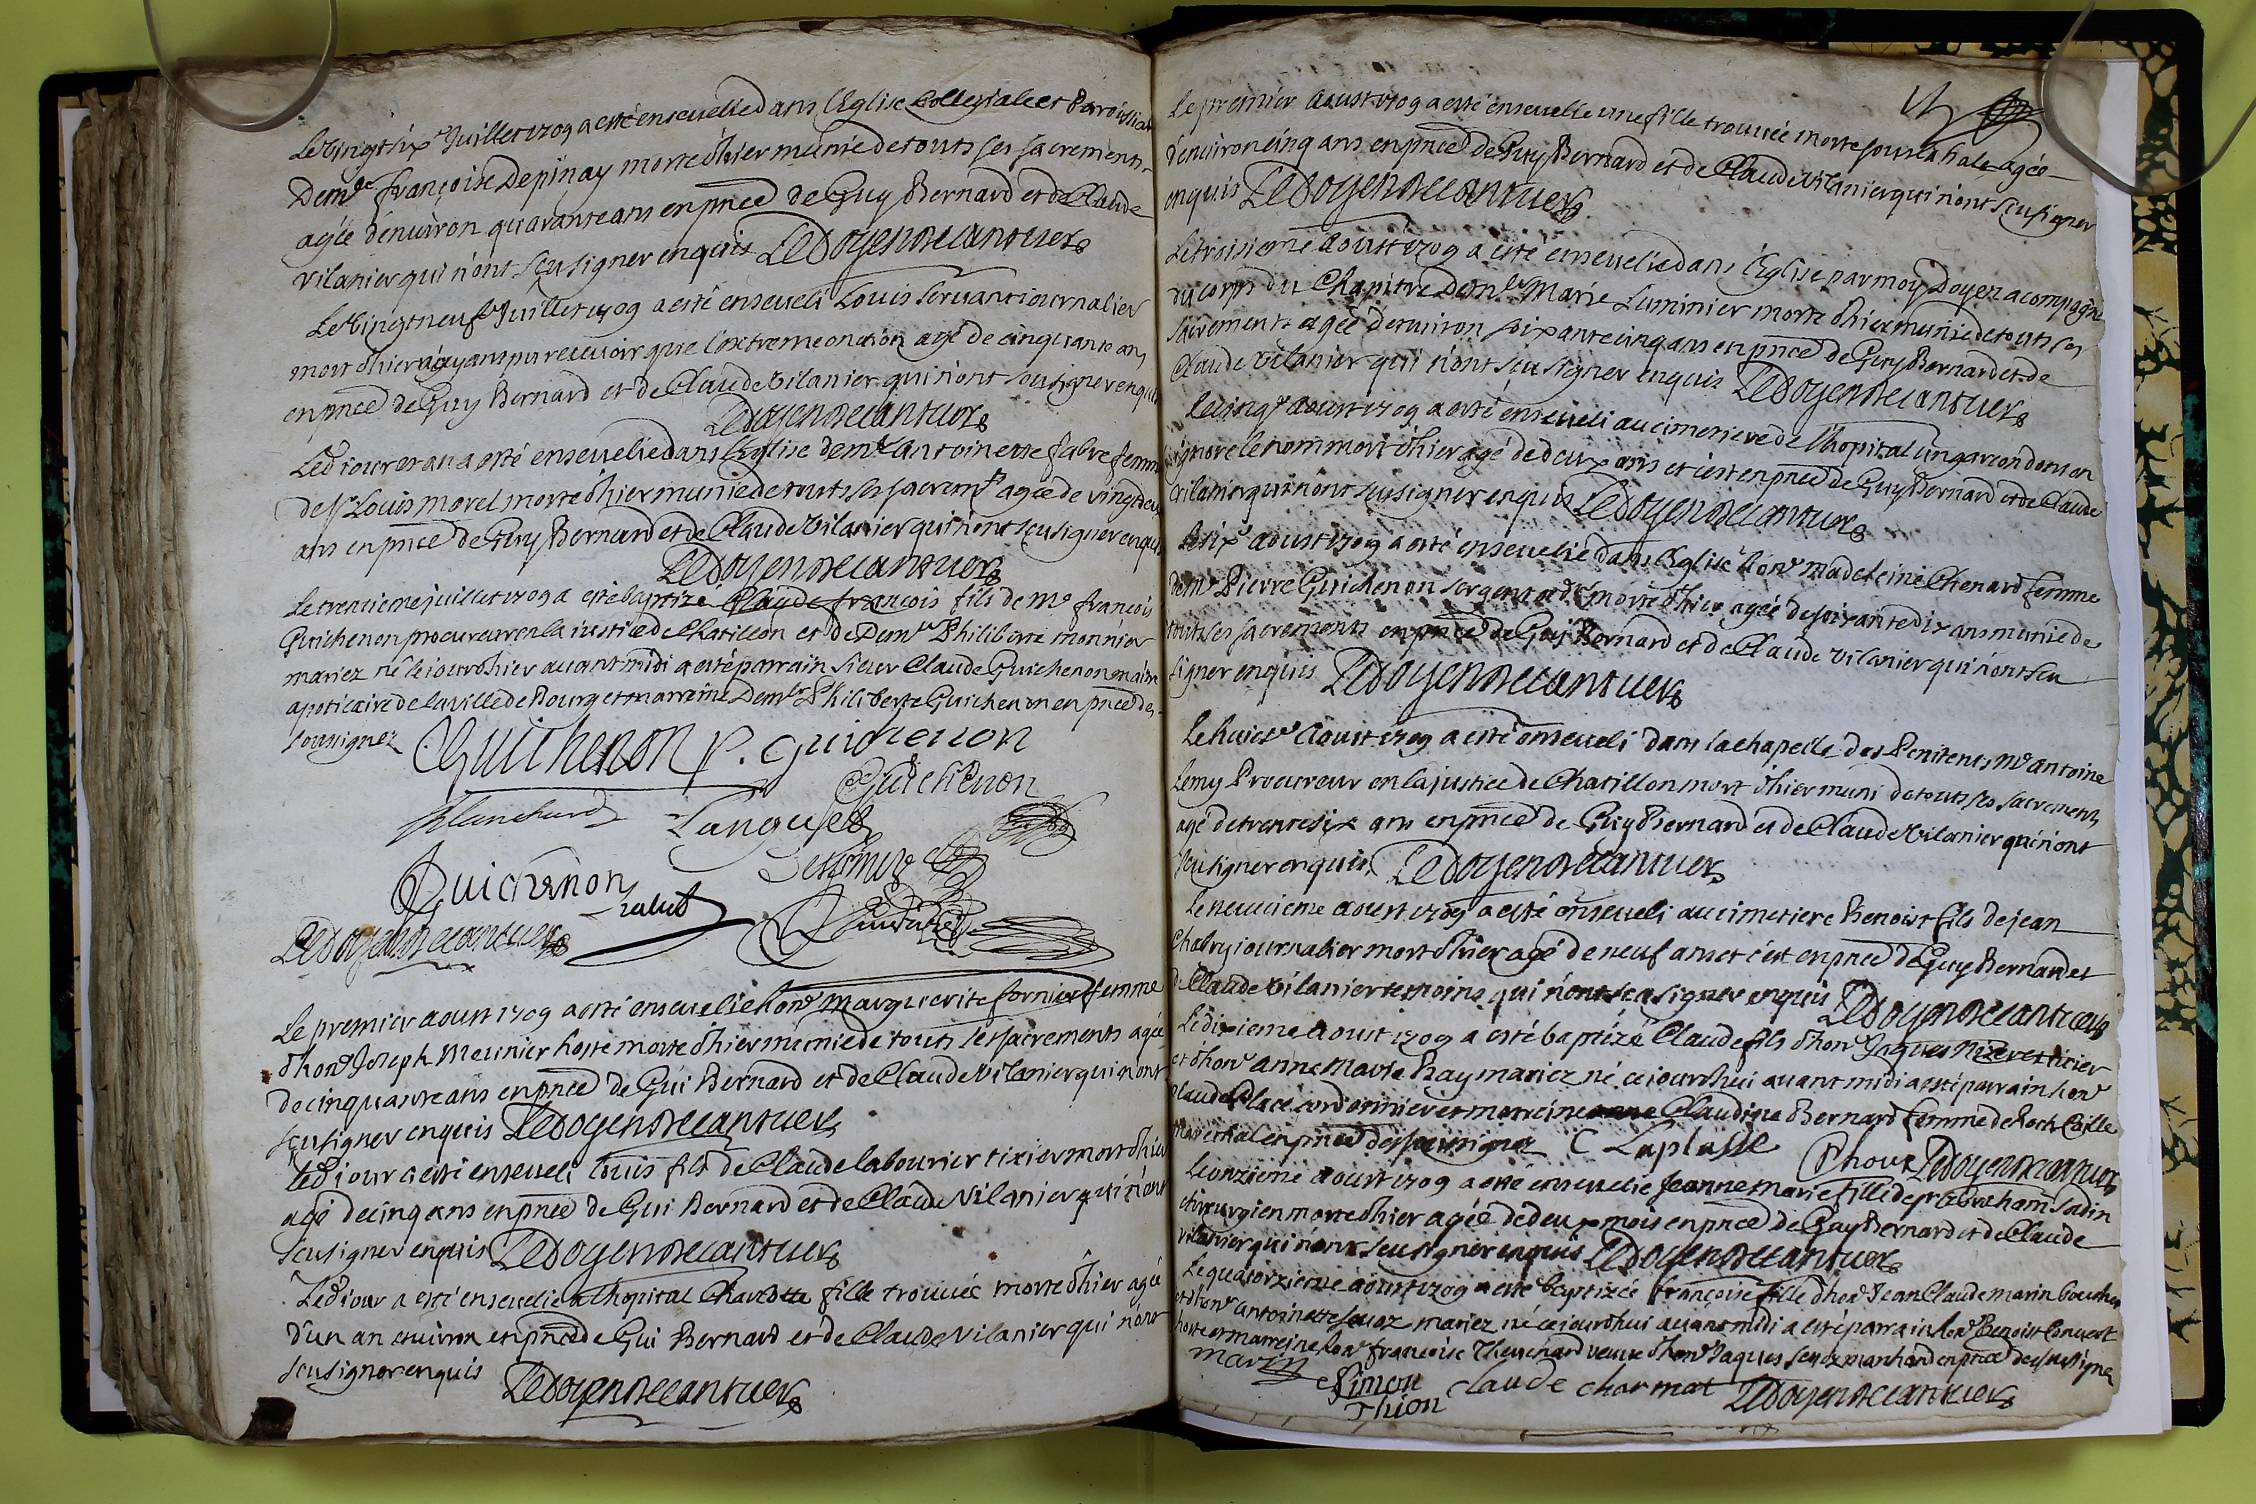 Le vingt six^e Juillet 1709 a esté ensevelie dans l'Eglise Collegiale et Paroissial
Dem^lle françoise Depinay morte d'hier munie de touts ses sacrements
agée d'environ quarante ans en pnce de Guy Bernard et de Claude
vilanier qui n'ont sçeu signer enquis Ledoyen De Cantuers
Le vingt neuf Juillet 1709 a esté enseveli Louis servant journalier
mort d'hier n'ayans pu recevoir que l'extreme onction agé de cinquante ans
en pnce de Guy Bernard et de Claude Vilanier qui n'ont seu signer enquis
Ledoyen De Cantuers
Led jour et an a esté ensevelie dans l'Eglise dem^lle Antoinette fabre femme
de s^r Louis morel morte d'hier munie de touts ses sacrem^ts agée de vingt deux
ans en pnce de Guy Bernard et de Claude Vilanier qui n'ont seu signer enquis
Ledoyen De Cantuers
Le trentieme juillet 1709 a esté baptizé Claude françois fils de M^e françois
Guichenon procureur en la justice de Chatillon et de Dem^lle Philiberte monnier
mariez né le jour d'hier avant midi a esté parrain sieur Claude Guichenon maitre
apoticaire de la ville de Bourg et marreine Dem^lle Philiberte Guichenon en pnce des
soussignez Guichenon P. Guichenon
Guichenon
Blanchard Langułe
Guichenon
Ledoyen De Cantuers
Le premier aoust 1709 a esté ensevelie hon^e Marguerite fornier femme
d'hon^e Joseph Meunier hoste morte d'hier munie de touts les sacrements agée
de cinquante ans en pnce de Gui Bernard et de Claude Vilanier qui n'ont
sçeu signer enquis Ledoyen De Cantuers
Led jour a esté enseveli Louis fils de Claude labourier tixier mort d'hier
agé de cinq ans en pnce de Gui Bernard et de Claude Vilanier qui n'ont
sçeu signer enquis Ledoyen De Cantuers
Led jour a esté ensevelie a l'hopital Charlotte fille trouvée morte d'hier agée
d'un an environ en pnce de Gui Bernard et de Claude Vilanier qui n'ont
sceu signer enquis
Ledoyen De Cantuers
Le premier Aoust 1709 a esté ensevelie une fille trouvée morte sous la hale agée
d'environ cinq ans en pnce de Guy Bernard et de Claude Vilanier qui n'ont sceu signer
enquis Ledoyen De Cantuers
Le troisieme Aoust 1709 a esté ensevelie dans l'Eglise par moy Doyen acompagné
du corps du Chapitre Dem^lle Marie Luminier morte d'hier munie de touts ses
sacrements agée d'environ soixante cinq ans en pnce de Guy Bernard et de
Claude Vilanier qui n'ont sceu signer enquis Ledoyen De Cantuers
Le cinq^e Aoust 1709 a esté enseveli au cimetiere de l'hopital un garcon dont on
ignore le nom mort d'hier agé de deux ans et c'est en pnce de Guy Bernard et de Claude
vilanier qui n'ont sceu signer enquis Ledoyen De Cantuers
Le six^e Aoust 1709 a esté ensevelie dans l'Eglise hon^e Madeleine Chenard femme
de m^e Pierre Guichenon sergent ord^re morte d'hier agée de soixante dix ans munie de
touts ses sacrements en pnce de Guy Bernard et de Claude Vilanier qui n'ont sceu
signer enquis Ledoyen De Cantuers
Le huict^e Aoust 1709 a esté enseveli dans la chapelle des Penitents M^e Antoine
Remy Procureur en la justice de Chatillon mort d'hier muni de touts ses sacrements
agé de trente six ans en pnce de Guy Bernard et de Claude Vilanier qui n'ont
sceu signer enquis Ledoyen De Cantuers
Le neuvieme Aoust 1709 a esté enseveli au cimetiere Benoist fils de jean
Chabry journalier mort d'hier agé de neuf ans et c'est en pnce de Guy Bernard et
de Claude Vilanier temoins qui n'ont sceu signer enquis Ledoyen De Cantuers
Le dixieme Aoust 1709 a esté baptizé Claude fils d'hon^e Jaques Nizeret tixier
et d'hon^e Anne Marie Ray mariez né ce jourd'hui avant midi a esté parrain hon^e
Claude Place cordonnier et marreine Claudine Bernard femme de Roch Caille
marechal en pnce des soussignez C Laplasse Ledoyen De Cantuers
Le onzieme Aoust 1709 a esté ensevelie Jeanne Marie fille de s^r Abraham Sadin
chirurgien morte d'hier agée de deux mois en pnce de Guy Bernard et de Claude
vilanier qui n'ont sceu signer enquis Ledoyen De Cantuers
Le quatorzieme Aoust 1709 a esté baptizée françoise fille d'hon^e Jean Claude marin boucher
et d'hon^e Antoinette mariez né ce jourd'hui avant midi a esté parrain hon^e Benoist Convert
hoste et marreine hon^e francoise Thevenard veuve d'hon^e Jaques marchand en pnce des soussignez
marin Simon Claude Charmat Ledoyen De Cantuers
Thion